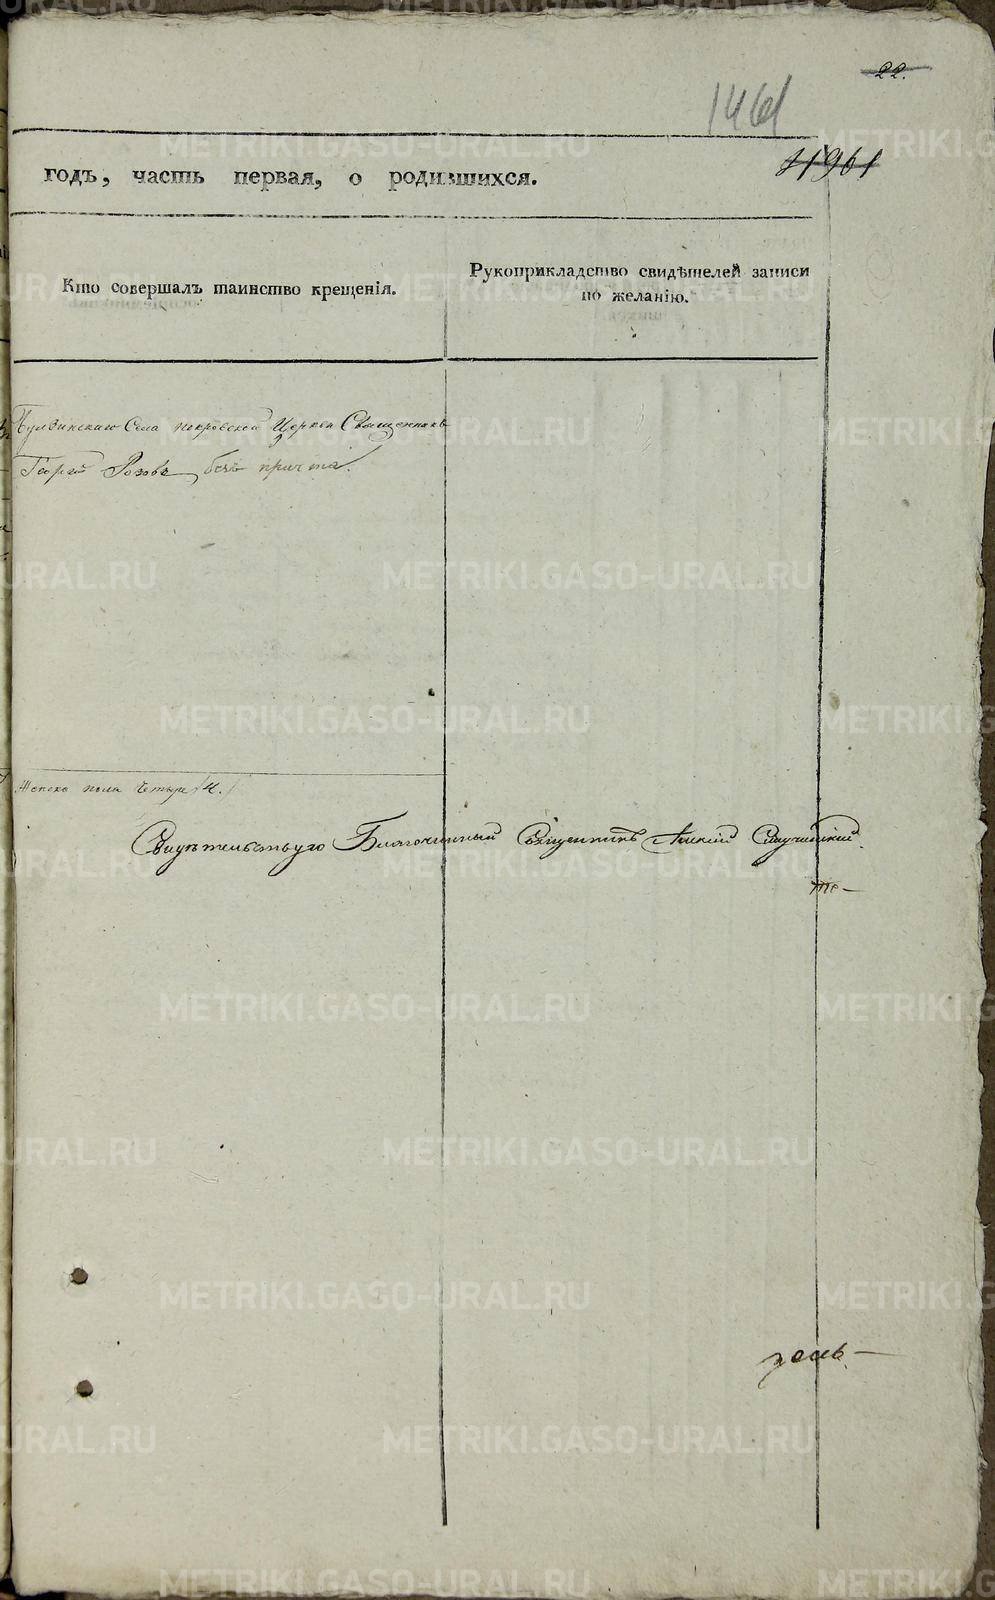 22.
1461
1961
годъ, часть первая, о родившихся.
Кто совершалъ таинство крещенія.
Рукоприкладство свидѣтелей записи
по желанію.
Села покровской Церкви Священникъ
Георгій Розовъ, безъ причта.
Женска пола Четыре /4./
Свидѣтельствую Благочинный Священникъ
зень
METRIKI.GASO-URAL.RU